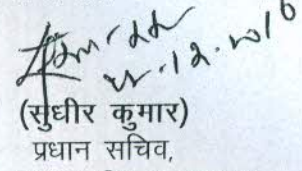 12.2016
(सुधीर कुमार)
प्रधान सचिव,